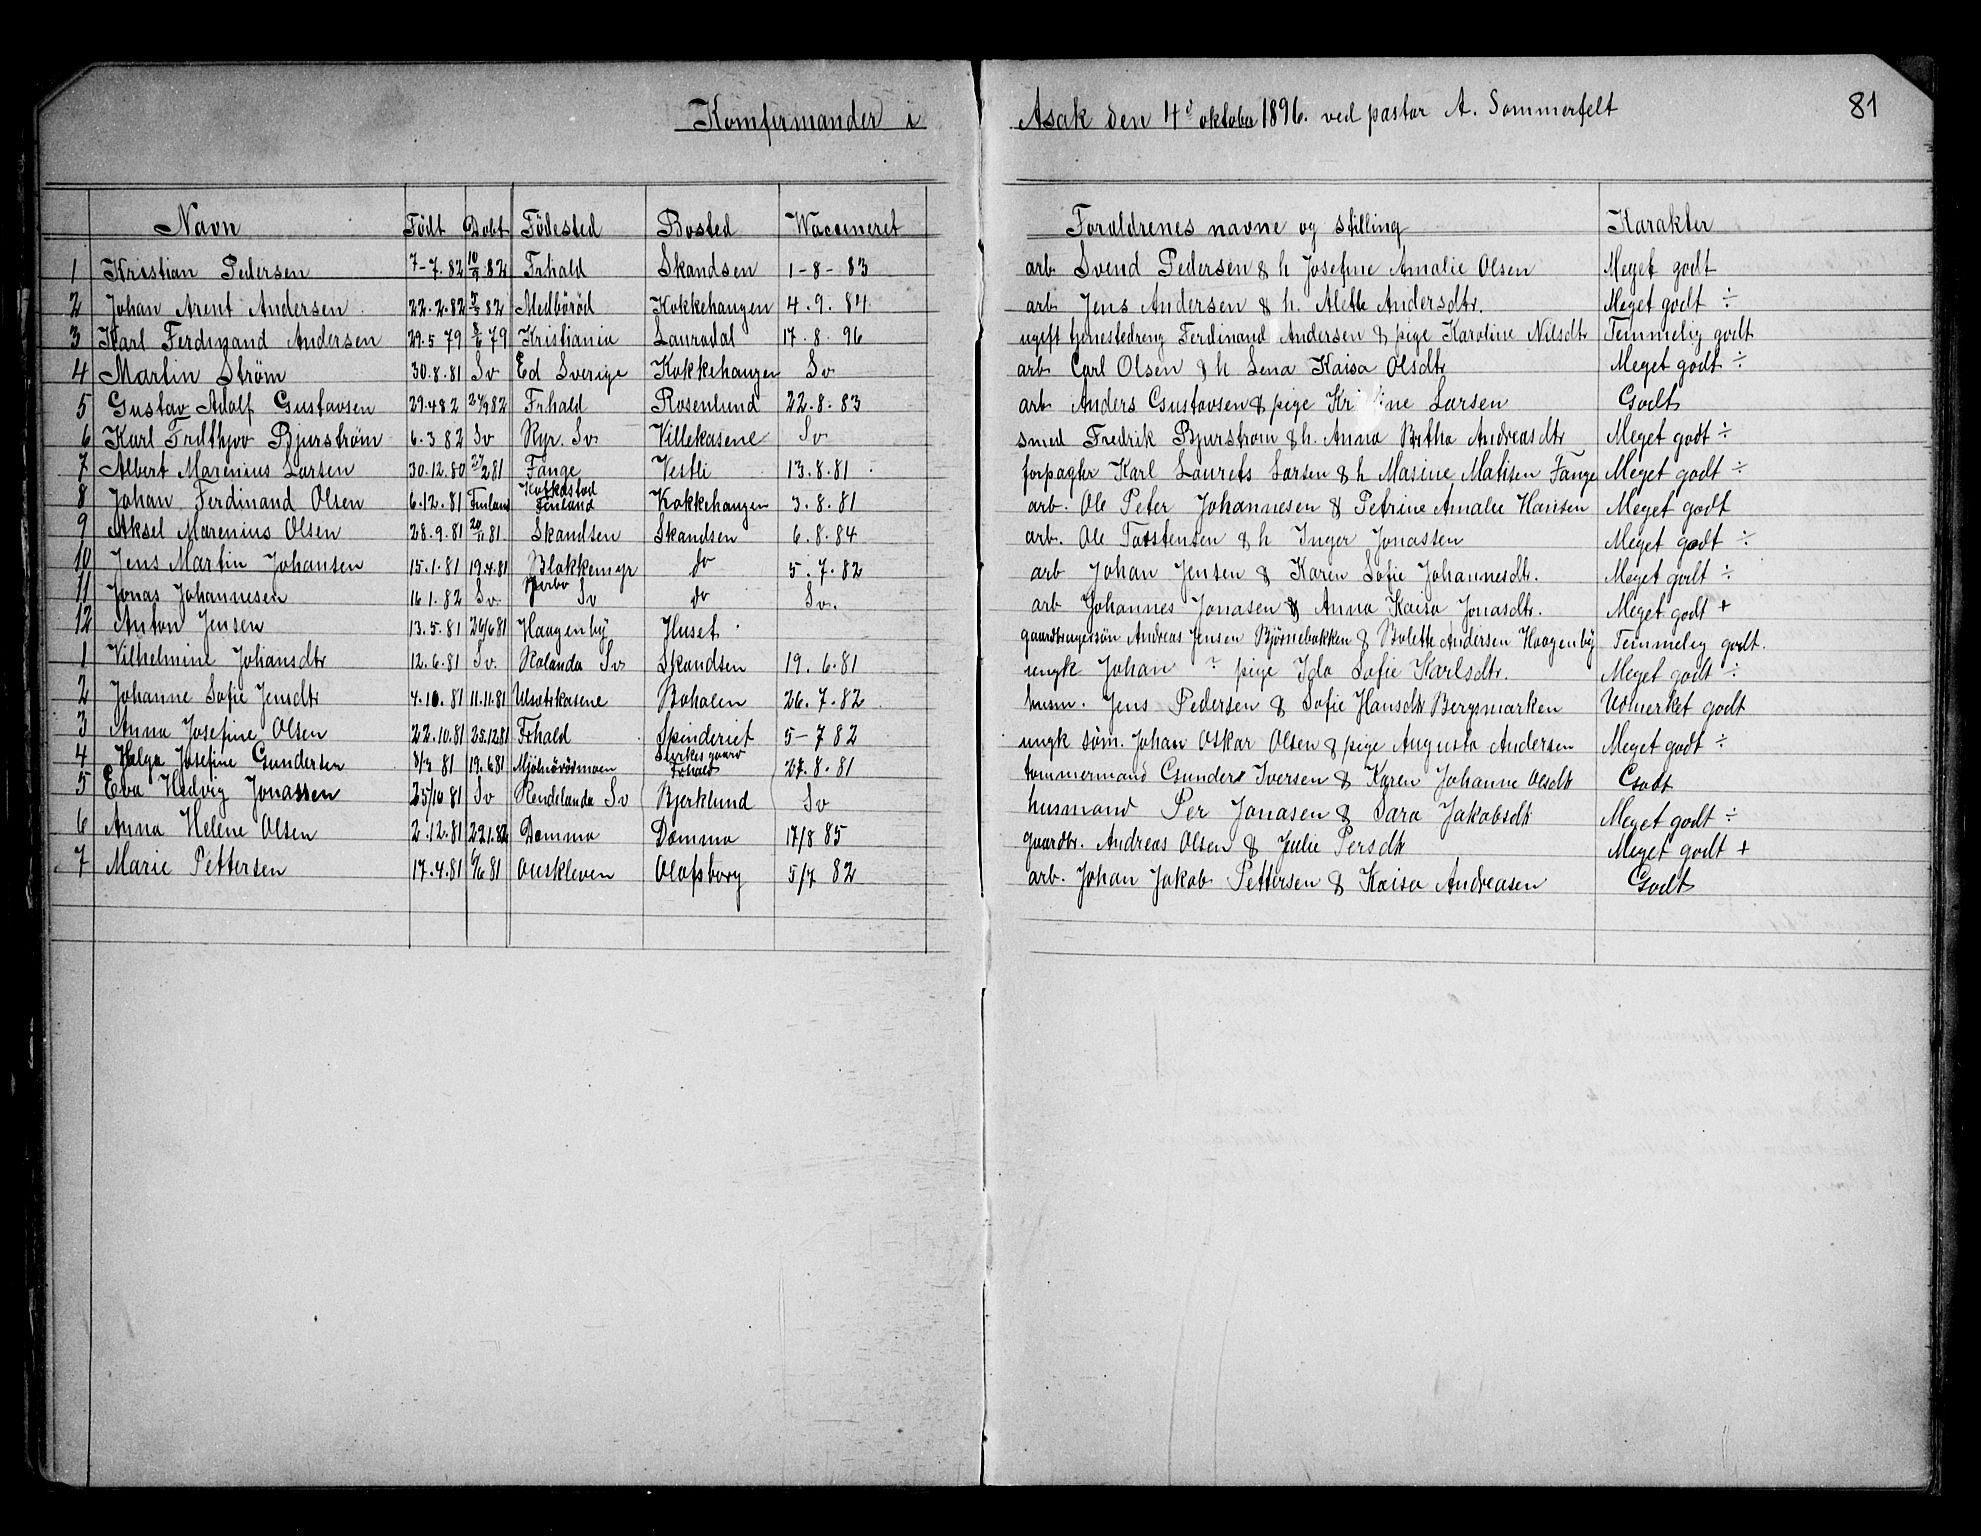 Komfirmander i Asak den 4de oktober 1896. ved pastor A. Sommerfelt 81
Navn Født Døbt Födested Bosted Vaccineret Foraldrenes navne og stilling Karakter
1 Kristian Pedersen 7-7.82 10/9 82 Frhald Skandsen 1-8-83 arb Svend Pedersen & h Josefine Amalie Olsen Meget godt
2 Johan Arent Andersen 22.2.82 82 Melbörød Kokkehaugen 4.9.84 arb Jens Andersen & h. Alette Andersdtr. Meget godt ÷
3 Karl Ferdinand Andersen 29.5 79 8/6 79 Kristiania Lauradal 17.8.96 ugift tjenestedreng Ferdinand Andersen & pige Karoline Nilsdtr Temmelig godt
4 Martin Strøm 30.8.81 Sv Ed Sverige Kokkehaugen Sv arb Carl Olsen & h Lena Kaisa Olsdtr Meget godt ÷
5 Gustav Adolf Gustavsen 29.4 82 24/9 82 Frhald Rosenlund 22.8.83 arb Anders Gustavsen & pige Kri ine Larsen Godt
6 Karl Fridthjov Bjurstrøm 6.3 82 Sv Ryr. Sv Villekasene Sv smed Fredrik Bjurstrøm & h. Anna Britha Andreasdtr Meget godt ÷
7 Albert Marenius Larsen 30.12.80 27/2 81 Fange Vestli 13.8.81 forpagter Karl Laurets Larsen & h Masine Matisen Fange Meget godt ÷
8 Johan Ferdinand Olsen 6.12.81 Finland Finland Kokkehaugen 3.8.81 arb. Ole Peter Johannesen & Petrine Amalie Hansen Meget godt
9 Aksel Marenius Olsen 28.9.81 20/11 81 Skandsen Skandsen 6.8.84 arb. Ole Torstensen & h Inger Jonassen Meget godt ÷
10 Jens Martin Johansen 15.1.81 19.4.81 Blakkemyr do 5.7.82 arb Johan Jensen & Karen Sofie Johannesdtr. Meget godt ÷
11 Jonas Johannesen 16 1.82 Sv Jærbo Sv do Sv. arb Johannes Jonasen & Anna Kaisa Jonasdtr. Meget godt +
12 Anton Jensen 13.5.81 26/6 81 Haagenby Huset gaardbrugersön Andreas Jensen Björnebakken & Bolette Andersen Haagenby Temmelig godt.
1 Vilhelmine Johansdtr 12.6.81 Sv. Rolanda Sv Skandsen 19.6.81 ungk Johan ? pige Ida Sofie Karlsdtr. Meget godt ÷
2 Johanne Sofie Jensdtr 4.10.81 11.11.81 Ulvatskasene Bohalen 26.7.82 husm. Jens Pedersen & Sofie Hansdtr Bergsmarken Udmerket godt
3 Anna Josefine Olsen 22.10.81 25.12 81 Frhald Spinderiet 5-7 82 ungk söm. Johan Oskar Olsen & pige Augusta Andersen Meget godt ÷
4 Helga Josefine Gundersen 8/3 81 19.6 81 Mjølnörødsmoen Styrkesgaard Frhald 27.8.81 tømmermand Gunder Iversen & Karen Johanne Olsdtr Godt
5 Eva Hedvig Jonassen 25/10 81 Sv Rendelanda Sv Bjerklund Sv husmand Per Jonasen & Sara Jakobsdtr Meget godt ÷
6 Anna Helene Olsen 2.12.81 22.1.82 Damma Damma 17/8 85 gaardbr. Andreas Olsen & Julie Persdtr Meget godt +
7 Marie Pettersen 17.4.81 6/6 81 Auskleven Olafsborg 5/7 82 arb. Johan Jakob Pettersen & Kaisa Andreasen Godt